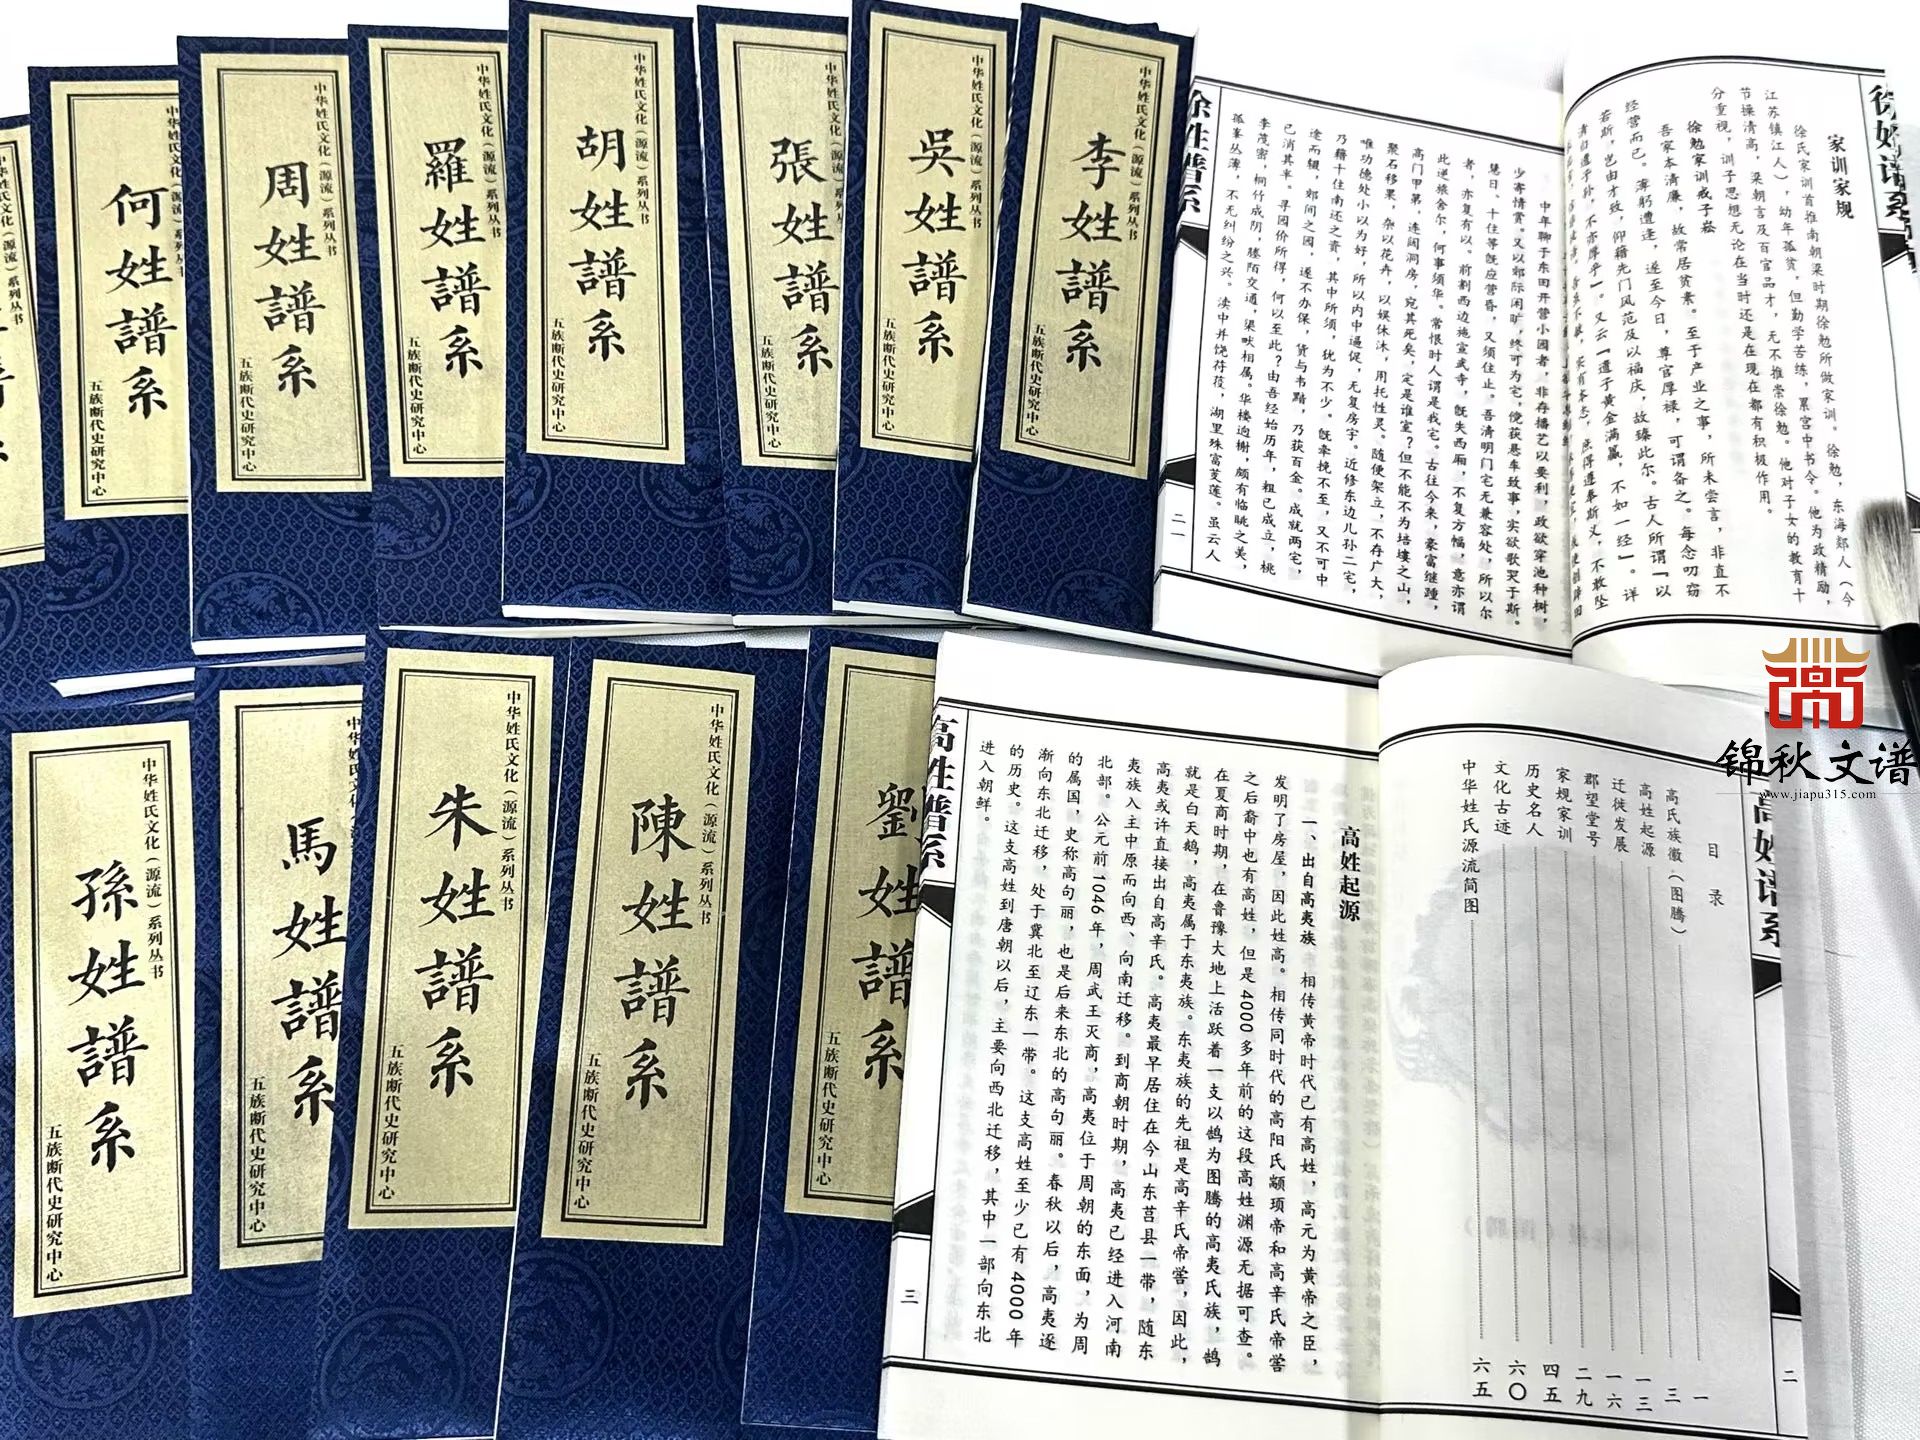 何姓譜系
五族断代史研究中心
中华姓氏文化（源流）系列丛书
周姓譜系
五族断代史研究中心
中华姓氏文化（源流）系列丛书
羅姓譜系
五族断代史研究中心
中华姓氏文化（源流）系列丛书
胡姓譜系
五族断代史研究中心
中华姓氏文化（源流）系列丛书
張姓譜系
五族断代史研究中心
中华姓氏文化（源流）系列丛书
吳姓譜系
五族断代史研究中心
中华姓氏文化（源流）系列丛书
李姓譜系
五族断代史研究中心
徐姓谱系
家训家规
徐氏家训首推南朝梁时期徐勉所做家训。徐勉，东海郯人（今
江苏镇江人），幼年孤贫，但勤学苦练，累官中书令。他为政精励，
节操清高，梁朝言及百官品才，无不推崇徐勉。他对子女的教育十
分重视，训子思想无论在当时还是在现在都有积极作用。
徐勉家训戒子崧
吾家本清廉，故常居贫素。至于产业之事，所未尝言，非直不
经营而已。薄躬遭逢，遂至今日，尊官厚禄，可谓备之。每念叨窃
若斯，岂由才致，仰籍先门风范及以福庆，故臻此尔。古人所谓『以
清白遗子孙，不亦厚乎』。又云『遗子黄金满籝，不如一经』。详
徐姓谱系
中年聊于东田开营小园者，非存播艺以要利，政欲穿池种树，
少寄情赏。又以郊际闲旷，终可为宅，傥获悬车致事，实欲歌哭于斯。
慧日、十住等既应营昏，又须住止。吾清明门宅无兼容处，所以尔
者，亦复有以。前割西边施宣武寺，既失西厢，不复方幅，意亦谓
此逆旅舍尔，何事须华。常恨时人谓是我宅。古往今来，豪富继踵，
高门甲第，连闼洞房，宛其死矣，定是谁室？但不能不为培塿之山，
聚石移果，杂以花卉，以娱休沐，用托性灵。随便架立，不存广大，
唯功德处小以为好，所以内中逼促，无复房宇。近修东边儿孙二宅，
乃藉十住南还之资，其中所须，犹为不少。既牵挽不至，又不可中
途而辍，郊间之园，遂不办保，货与韦黯，乃获百金。成就两宅，
已消其半。寻园价所得，何以至此？由吾经始历年，粗已成立，桃
李茂密，桐竹成阴，塍陌交通，渠畎相属。华楼迥榭，颇有临眺之美，
孤峯丛薄，不无纠纷之兴。渎中并饶荇葭，湖里殊富芰莲。虽云人
二一
中华姓氏文化（源流）系列丛书
孫姓譜系
五族断代史研究中心
馬姓譜系
五族断代史研究中心
中华姓氏文化（源流）系列丛书
朱姓譜系
五族断代史研究中心
中华姓氏文化（源流）系列丛书
陳姓譜系
五族断代史研究中心
劉姓譜系
五族断代史研究中心
高姓谱系
目录
高氏族徽（图腾） 一
高姓起源 三
迁徙发展 一三
郡望堂号 一六
家规家训 二九
历史名人 四五
文化古迹 六〇
中华姓氏源流简图 六五
二
高姓谱系
高姓起源
一、出自高夷族 相传黄帝时代已有高姓，高元为黄帝之臣，
发明了房屋，因此姓高。相传同时代的高阳氏颛顼帝和高辛氏帝喾
之后裔中也有高姓，但是4000多年前的这段高姓渊源无据可查。
在夏商时期，在鲁豫大地上活跃着一支以鹄为图腾的高夷氏族，鹄
就是白天鹅，高夷属于东夷族。东夷族的先祖是高辛氏帝喾，因此，
高夷或许直接出自高辛氏。高夷最早居住在今山东莒县一带，随东
夷族入主中原而向西、向南迁移。到商朝时期，高夷已经进入河南
北部。公元前1046年，周武王灭商，高夷位于周朝的东面，为周
的属国，史称高句丽，也是后来东北的高句丽。春秋以后，高夷逐
渐向东北迁移，处于冀北至辽东一带。这支高姓至少已有4000年
的历史。这支高姓到唐朝以后，主要向西北迁移，其中一部向东北
进入朝鲜。
三
锦秋文谱
www.jiapu315.com